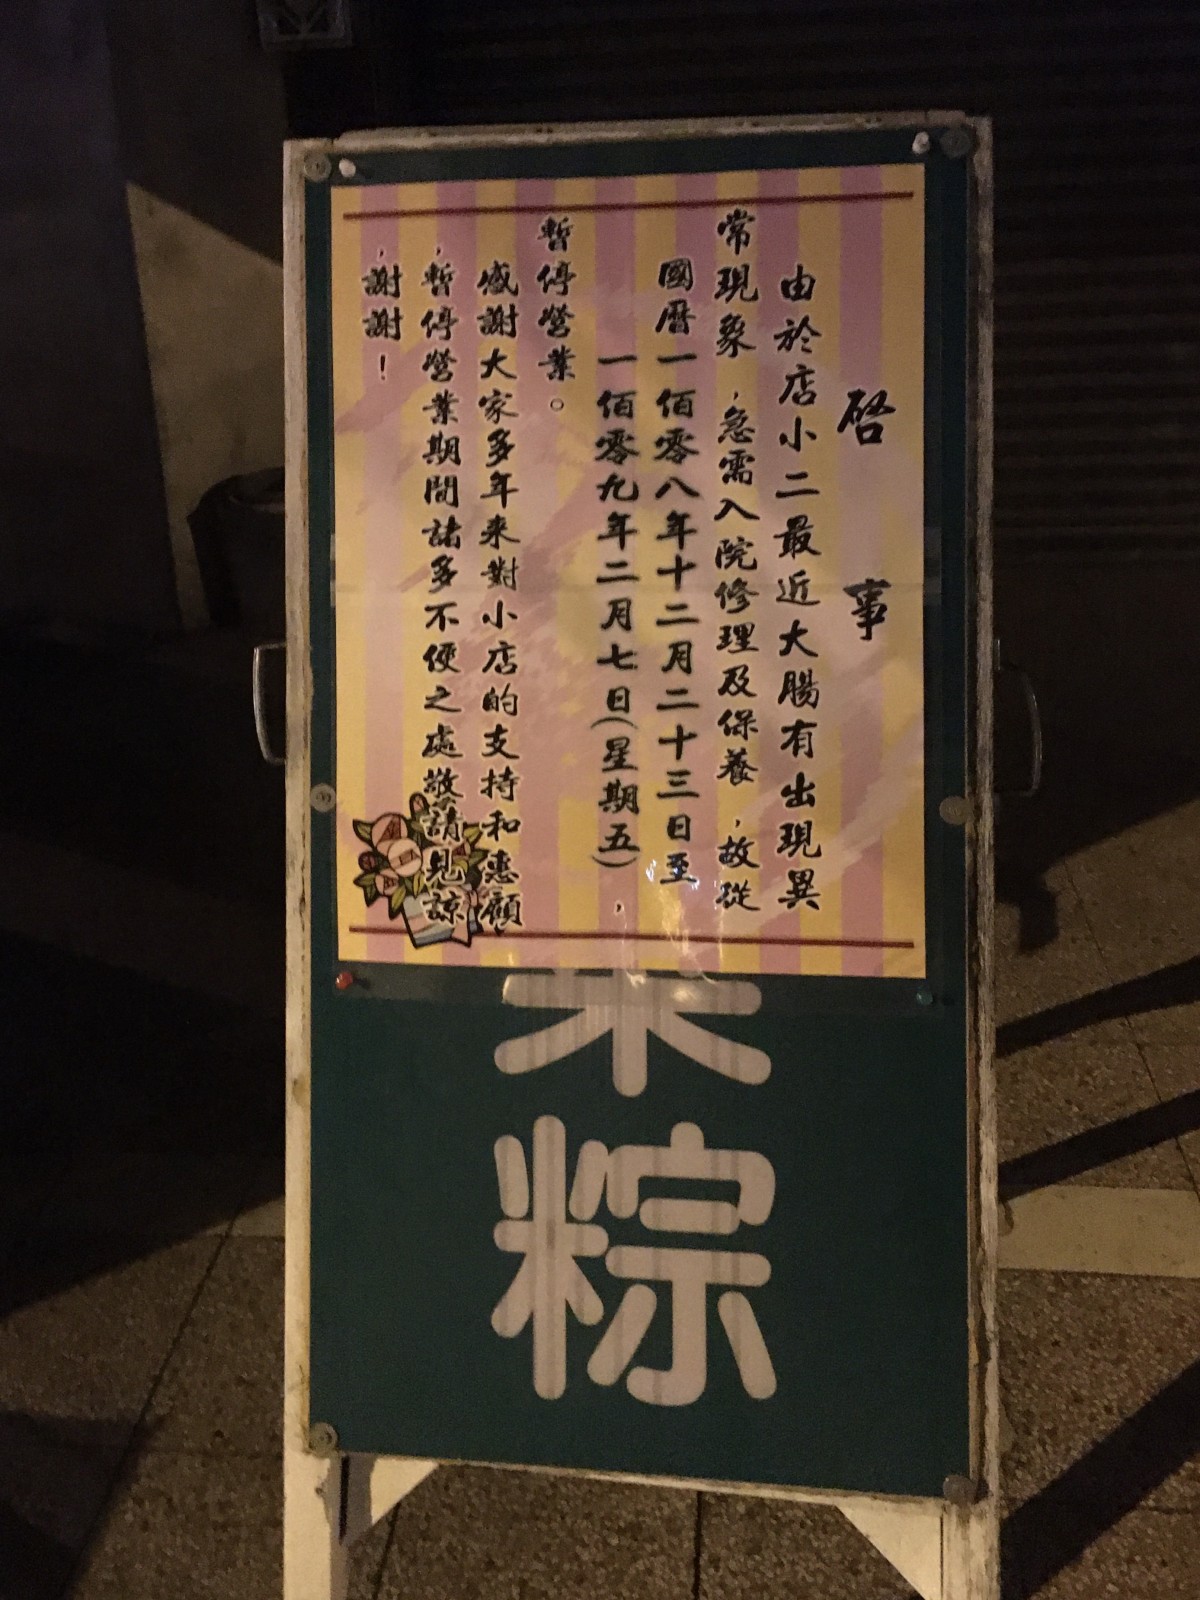 啓事
由於店小二最近大腸有出現異
常現象,急需入院修理及保養,故從
國曆一佰零八年十二月二十三日至
一佰零九年二月七日(星期五),
暫停營業。
感謝大家多年來對小店的支持和惠顧
,暫停營業期間諸多不便之處敬請見諒
,謝謝!
粽